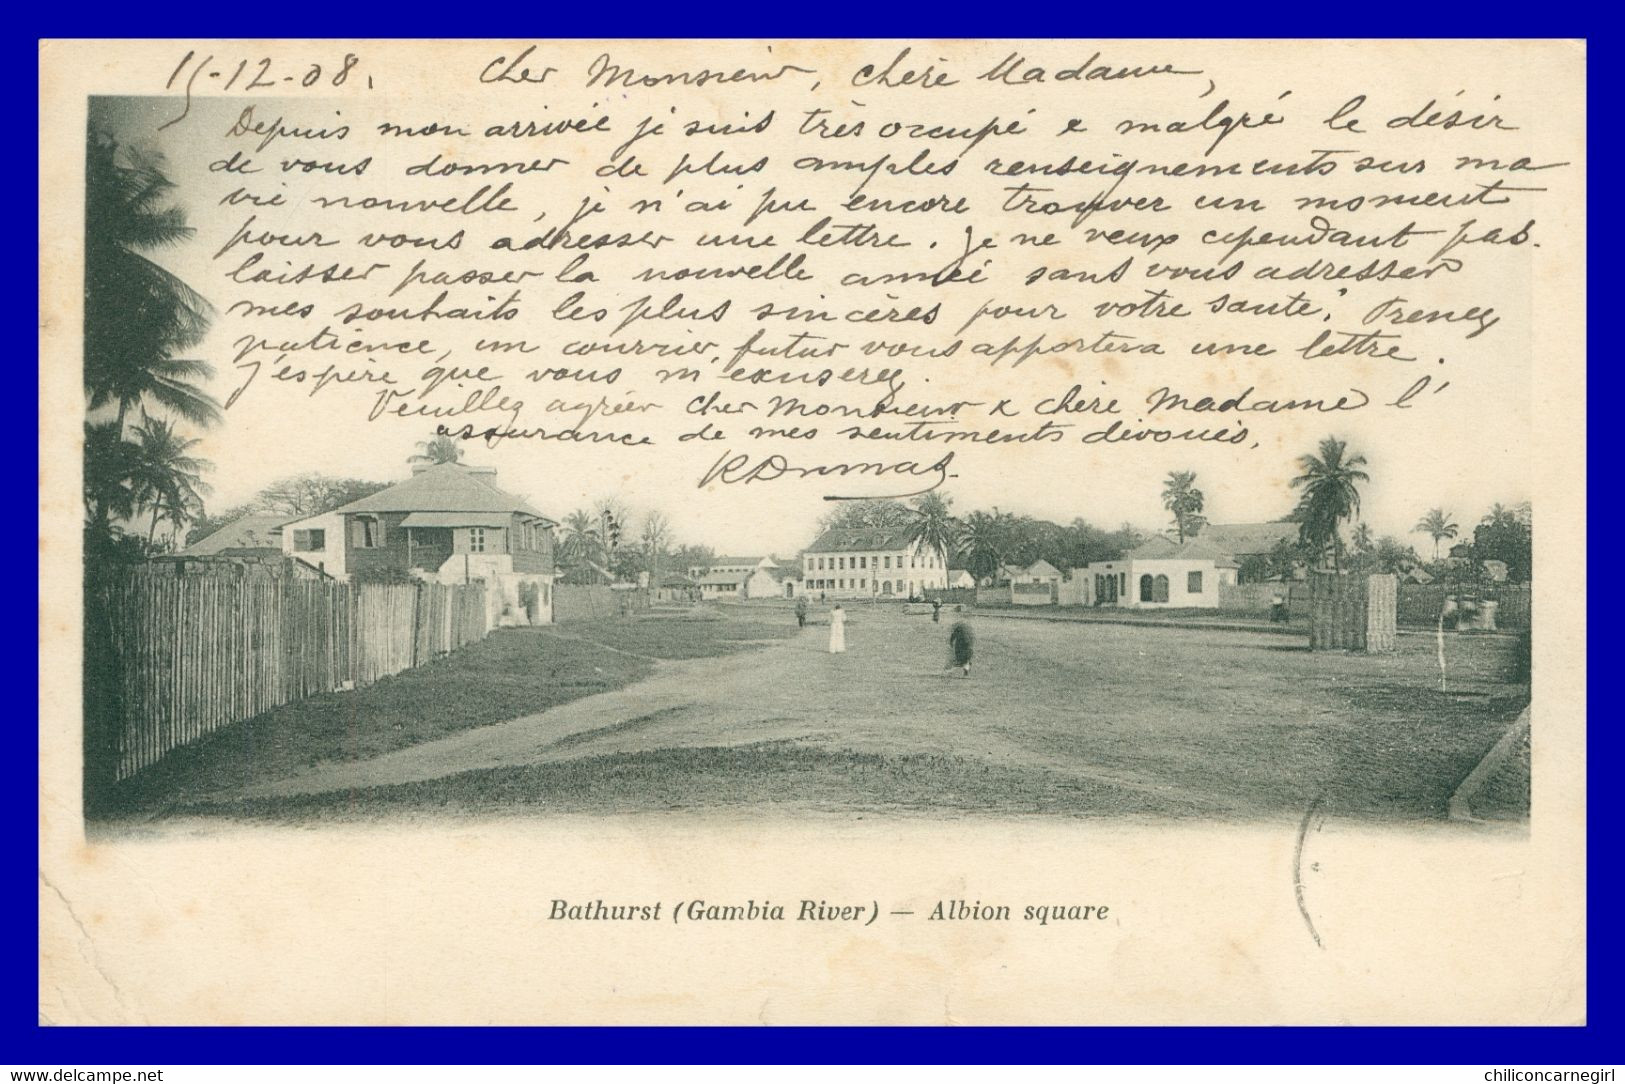 15-12-08. Cher Monsieur, chère Madame,
Depuis mon arrivée je suis très occupé e malgré le désir
de vous donner de plus amples renseignements sur ma
vie nouvelle, je n'ai pu encore trouver un moment
pour vous adresser une lettre. Je ne veux cependant pas.
laisser passer la nouvelle année sans vous adresser
mes souhaits les plus sincères pour votre santé. Prenez
patience, un courrier futur vous apportera une lettre.
J'espère que vous m'excuserez.
Veuillez agréer Cher Monsieur & chère Madame l'
assurance de mes sentiments dévoués.
RDumas.
Bathurst (Gambia River) — Albion square
www.delcampe.net
chiliconcarnegirl